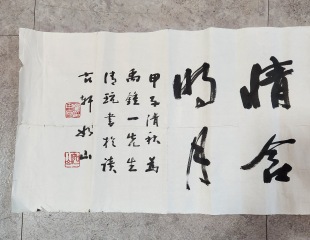 情含
明月
甲子清秋為
禹鐘一先生
清玩書於讀
古軒 山